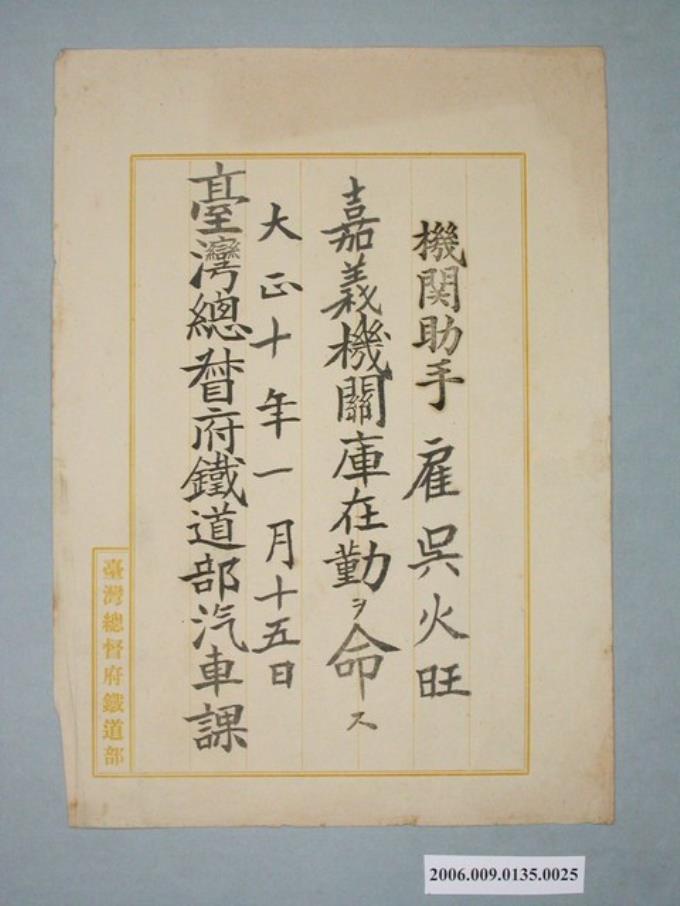 機関助手 雇 呉火旺
嘉義機關庫在勤ヲ命ス
大正十年一月十五日
臺灣總督府鐵道部汽車課
臺灣總督府鐵道部
2006.009.0135.0025